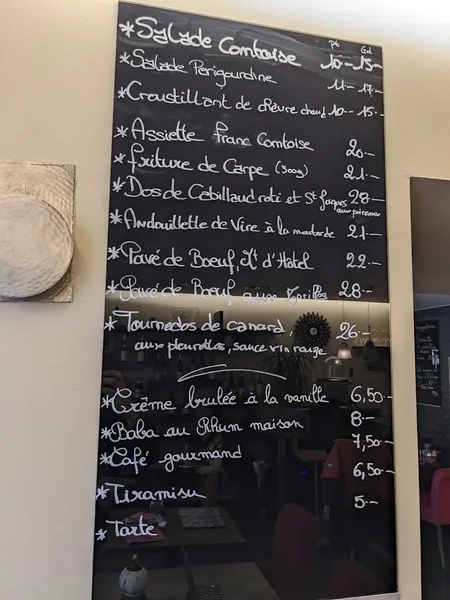 Pt Gd
*Salade Comtoise 10- 15-
*Salade Périgourdine 11- 17-
*Croustillant de chèvre chaud 10- 15-
*Assiette Franc Comtoise 20-
*friture de Carpe (300g) 21-
*Dos de Cabillaud roti et St Jaques 28-
aux poireaux
*Andouillette de Vire à la moutarde 21-
*Pavé de Boeuf, d'Hôtel 22-
*Pavé de Boeuf aux 28-
*Tournedos de canard, 26-
aux pleurottes, sauce vin rouge
*Crème brulée à la vanille 6,50-
*Baba au Rhum maison 8-
*Café gourmand 7,50-
*Tiramisu 6,50-
*Tarte 5-